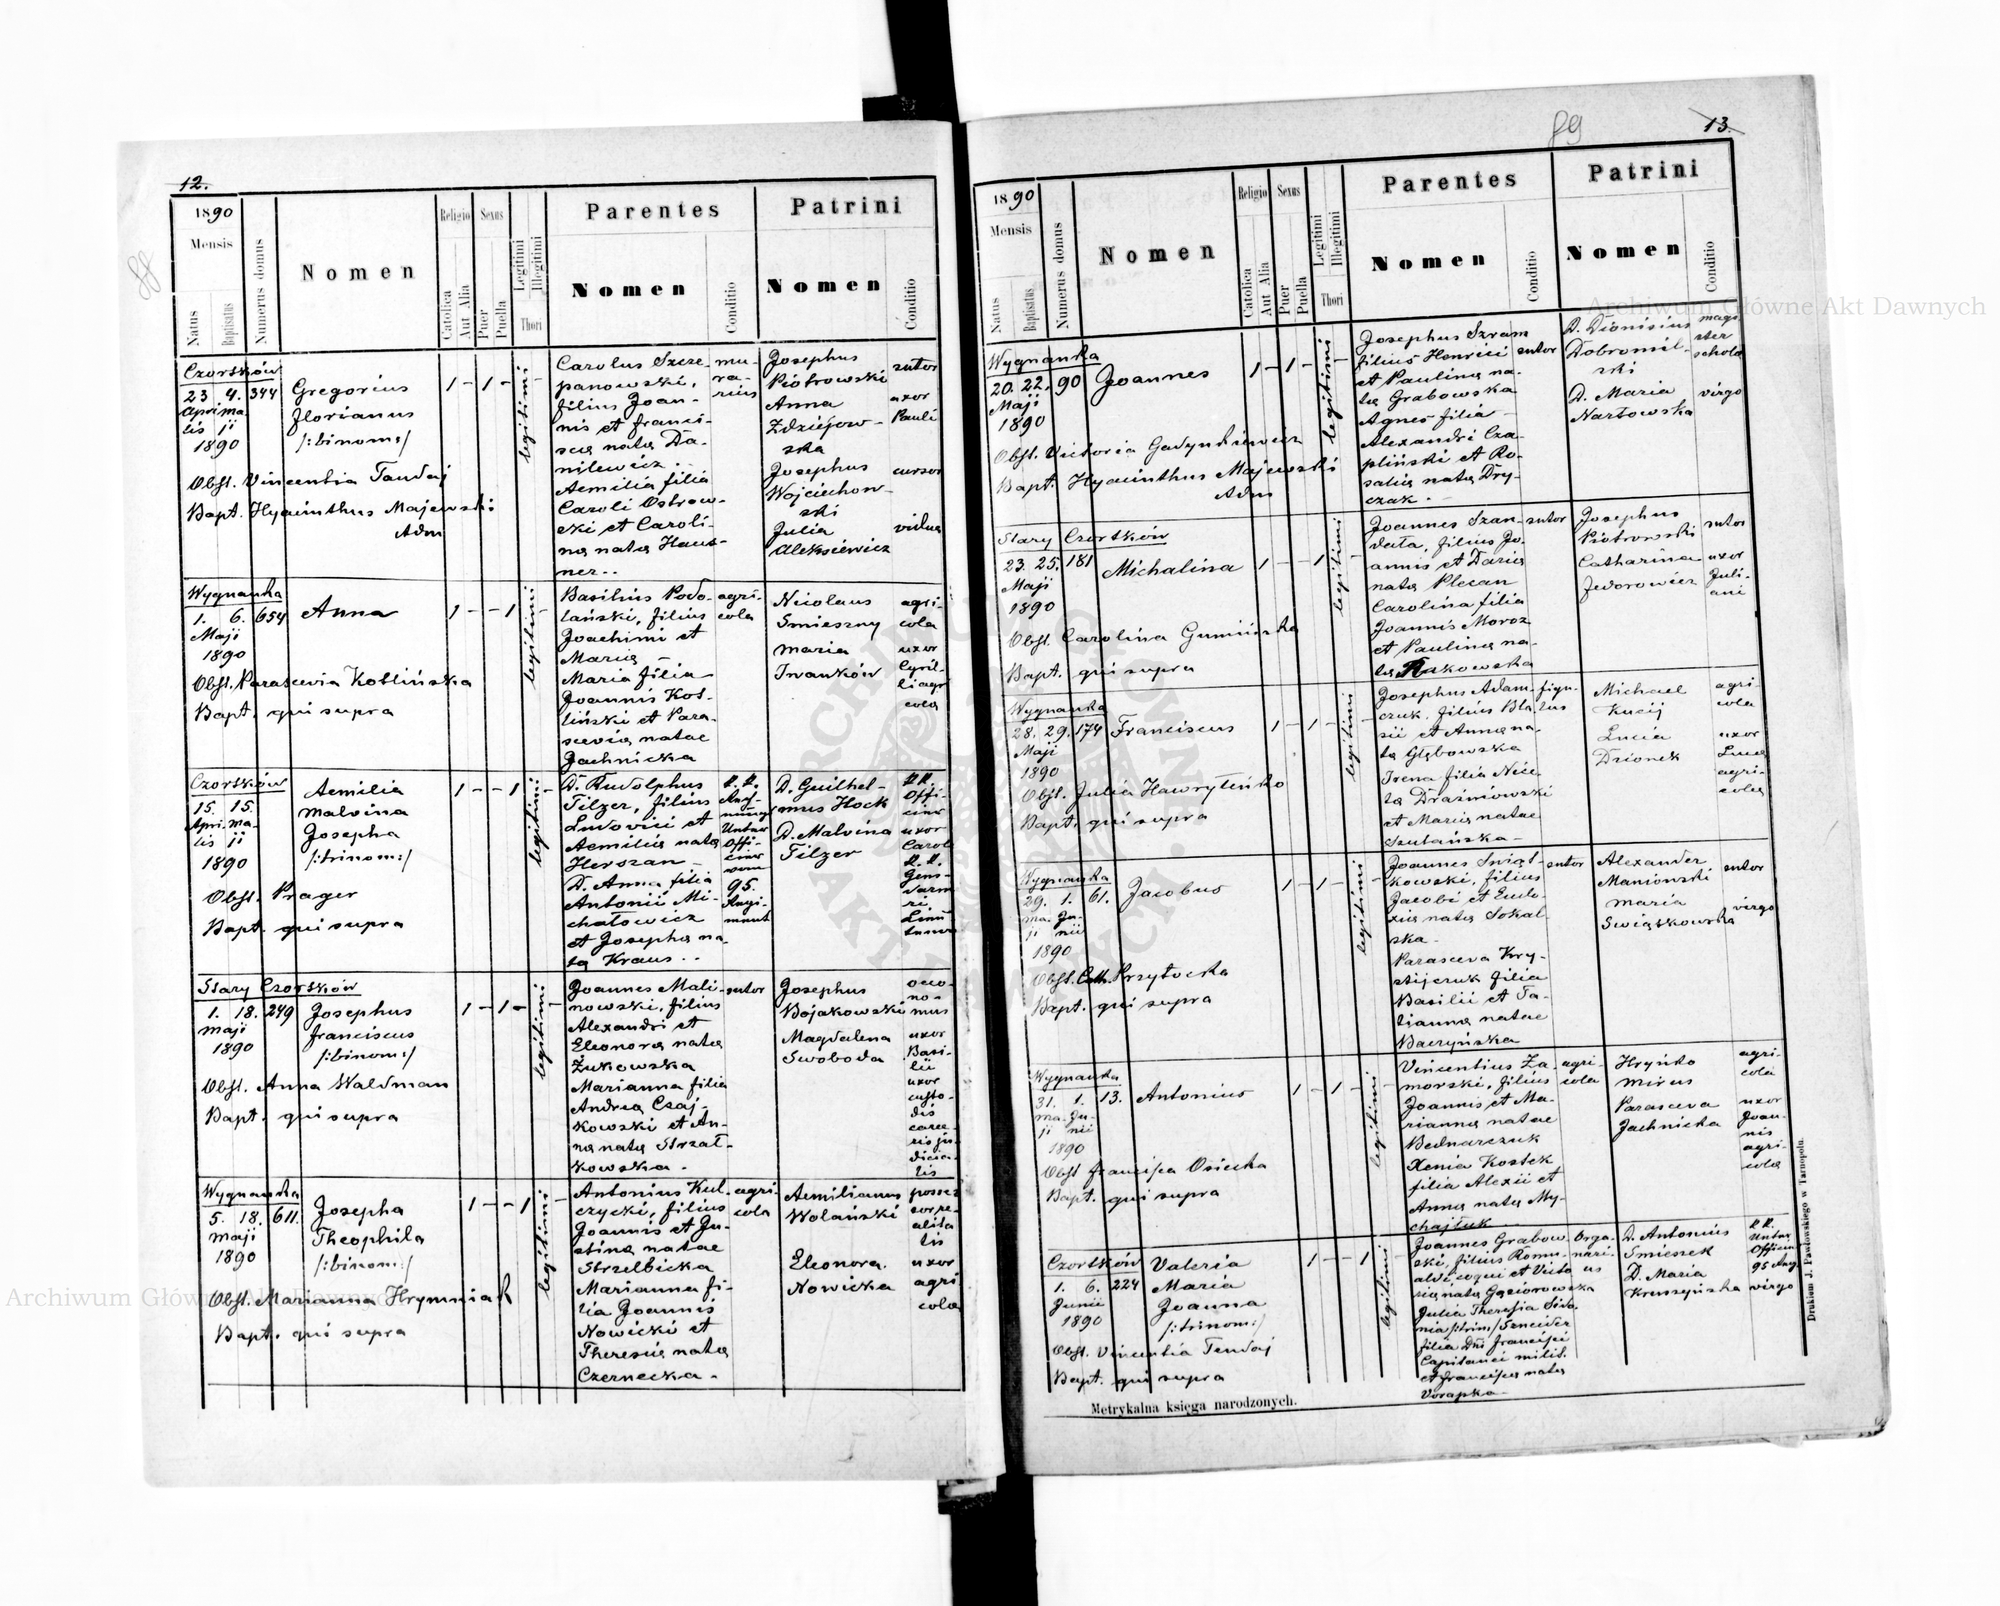 12.
1890
Mensis
Natus
Baptisatus
Numerus domus
Nomen
Religio
Catolica
Aut Alia
Sexus
Puer
Puella
Legitimi
Illegitimi
Thori
Parentes
Nomen
Conditio
Patrini
Nomen
Conditio
Czortków
23 4. 344
Aprilis maji
1890
Gregorius
Florianus
/:binom:/
1 - 1 -
legitimi
Carolus Szcze-
panowski,
filius Joan-
nis et Franci-
scae natae Da-
nilewicz.
Aemilia filia
Caroli Ostrow-
ski et Caroli-
nae natae Haus-
ner..
mu-
ra-
rius
Josephus
Piotrowski
Anna
Zdziejow-
ska
Josephus
Wojciechow-
ski
Julia
Aleksiewicz
sutor
uxor
Pauli
cursor
vidua
Obst. Vincentia Tandaj
Bapt. Hyacinthus Majewski
Adm
Wygnanka
1. 6. 654
Maji
1890
Anna
1 - - 1 -
legitimi
Basilius Podo-
lański, filius
Joachimi et
Mariae -
Maria filia
Joannis Kob-
liński et Para-
sceviae natae
Jachnicka
agri-
cola
Nicolaus
Smieszny
Maria
Iwanków
agri-
cola
uxor
Cyril-
li agri
cola
Obst. Parascevia Koblińska
Bapt. qui supra
Czortków
15. 15.
Aprilis maji
1890
Aemilia
Malvina
Josepha
/:trinom:/
1 - - 1 -
legitimi
D. Rudolphus
Tilzer, filius
Ludovici et
Aemiliae natae
Herszan -
D. Anna filia
Antonii Mi-
chałowicz
et Josephae na-
tae Kraus..
K. K.
Unter
Offi-
cier
vom
95.
Regi-
ment
D. Guilhel-
mus Hock
D. Malvina
Tilzer
K.K.
Offi-
cier
uxor
Caroli
K. K.
Gens-
darm
Obst. Prager
Bapt. qui supra
Stary Czortków
1. 18. 249
maji
1890
Josephus
Franciscus
/:binom:/
1 - 1 -
legitimi
Joannes Mali-
nowski, filius
Alexandri et
Eleonorae natae
Żukowska
Marianna filia
Andreae Czaj-
kowski et An-
nae natae Strzał-
kowska.
sutor
Josephus
Bojakowski
Magdalena
Swoboda
oeco-
no-
mus
uxor
Basi-
lii
uxor
custo-
dis
carce-
ris ju-
dicia-
lis
Obst. Anna Waldman
Bapt. qui supra
Wygnanka
5. 18. 611.
maji
1890
Josepha
Theophila
/:binom:/
1 - - 1 -
legitimi
Antonius Kul-
czycki, filius
Joannis et Ju-
stinae natae
Strzelbicka
Marianna fi-
lia Joannis
Nowicki et
Theresiae natae
Czernecka.
agri-
cola
Aemilianus
Wolański
Eleonora
Nowicka
posses
sor re-
alita
tis
uxor
agri
cola
Obst. Marianna Hrymniak
Bapt. qui supra
89
13.
1890
Mensis
Natus
Baptisatus
Numerus domus
Nomen
Religio
Catolica
Aut Alia
Sexus
Puer
Puella
Legitimi
Illegitimi
Thori
Parentes
Nomen
Conditio
Patrini
Nomen
Conditio
Wygnanka
20. 22. 90
Maji
1890
Joannes
1 - 1 -
legitimi
Josephus Szram
filius Henrici
et Paulinae na-
tae Grabowska
Agnes filia
Alexandri Cza-
pliński et Ro-
saliae natae Dry-
czak. -
sutor
D. Dionisius
Dobromil-
ski
D. Maria
Nartowska
magi
ster
schola
virgo
Obst. Victoria Gadynkiewicz
Bapt. Hyacinthus Majewski
Adm
Stary Czortków
23. 25. 181
Maji
1890
Michalina
1 - - 1 -
legitimi
Joannes Szan-
data, filius Jo-
annis et Dariae
natae Plecan
Carolina filia
Joannis Moroz
et Paulinae na-
tae Rakowska
sutor
Josephus
Piotrowski
Catharina
Jedorowicz
sutor
uxor
Juli-
ani
Obst. Carolina Guminska
Bapt. qui supra
Wygnanka
28. 29. 174
Maji
1890
Franciscus
1 - 1 -
legitimi
Josephus Adam-
czuk, filius Bla-
sii et Annae na-
tae Głębowska
Irena filia Nice-
tae Draźniowski
et Mariae natae
Szulańska -
figu-
lus
Michael
Kucij
Lucia
Dzionek
agri-
cola
uxor
Lucae
agri-
cola
Obst. Julia Hawryleńko
Bapt. qui supra
Wygnanka
29. 1. 61.
Maji Junii
1890
Jacobus
1 - 1 -
legitimi
Joannes Swiąt-
kowski, filius
Jacobi et Eudo-
xiae natae Sokal-
ska -
Parasceva Kry-
stijczuk filia
Basilii et Ta-
tiannae natae
Baczyńska
sutor
Alexander
Maniowski
Maria
Swiątkowska
sutor
virgo
Obst. Cath. Przytocka
Bapt. qui supra
Wygnanka
31. 1. 13.
Maji Junii
1890
Antonius
1 - 1 -
legitimi
Vincentius Za-
morski, filius
Joannis et Ma-
riannae natae
Bednarczuk
Xenia Kostek
filia Alexii et
Annae natae My-
chajluk
agri-
cola
Hryńko
Mirus
Parasceva
Jachnicka
agri-
cola
uxor
Joan-
nis
agri-
cola
Obst. Francisca Osiecka
Bapt. qui supra
Czortków
1. 6. 224
Junii
1890
Valeria
Maria
Joanna
/:trinom:/
1 - - 1 -
legitimi
Joannes Grabow-
ski, filius Romu-
aldi, coqui et Victo
riae natae Gąsiorowska
Julia Theresia Sido-
nia /:trin:/ Szneider
filia Dni Francisci
Capitanei milit.
et Franciscae natae
Vorapka -
Orga-
nari-
us
D. Antonius
Smieszek
D. Maria
Kruszyńska
K.K.
Unter
Officier
95 Reg.
virgo
Obst. Vincentia Tendaj
Bapt. qui supra
Metrykalna księga narodzonych.
Drukiem J. Pawłowskiego w Tarnopolu.
Archiwum Główne Akt Dawnych
Archiwum Główne Akt Dawnych
ARCHIWUM GŁÓWNE
AKT DAWNYCH